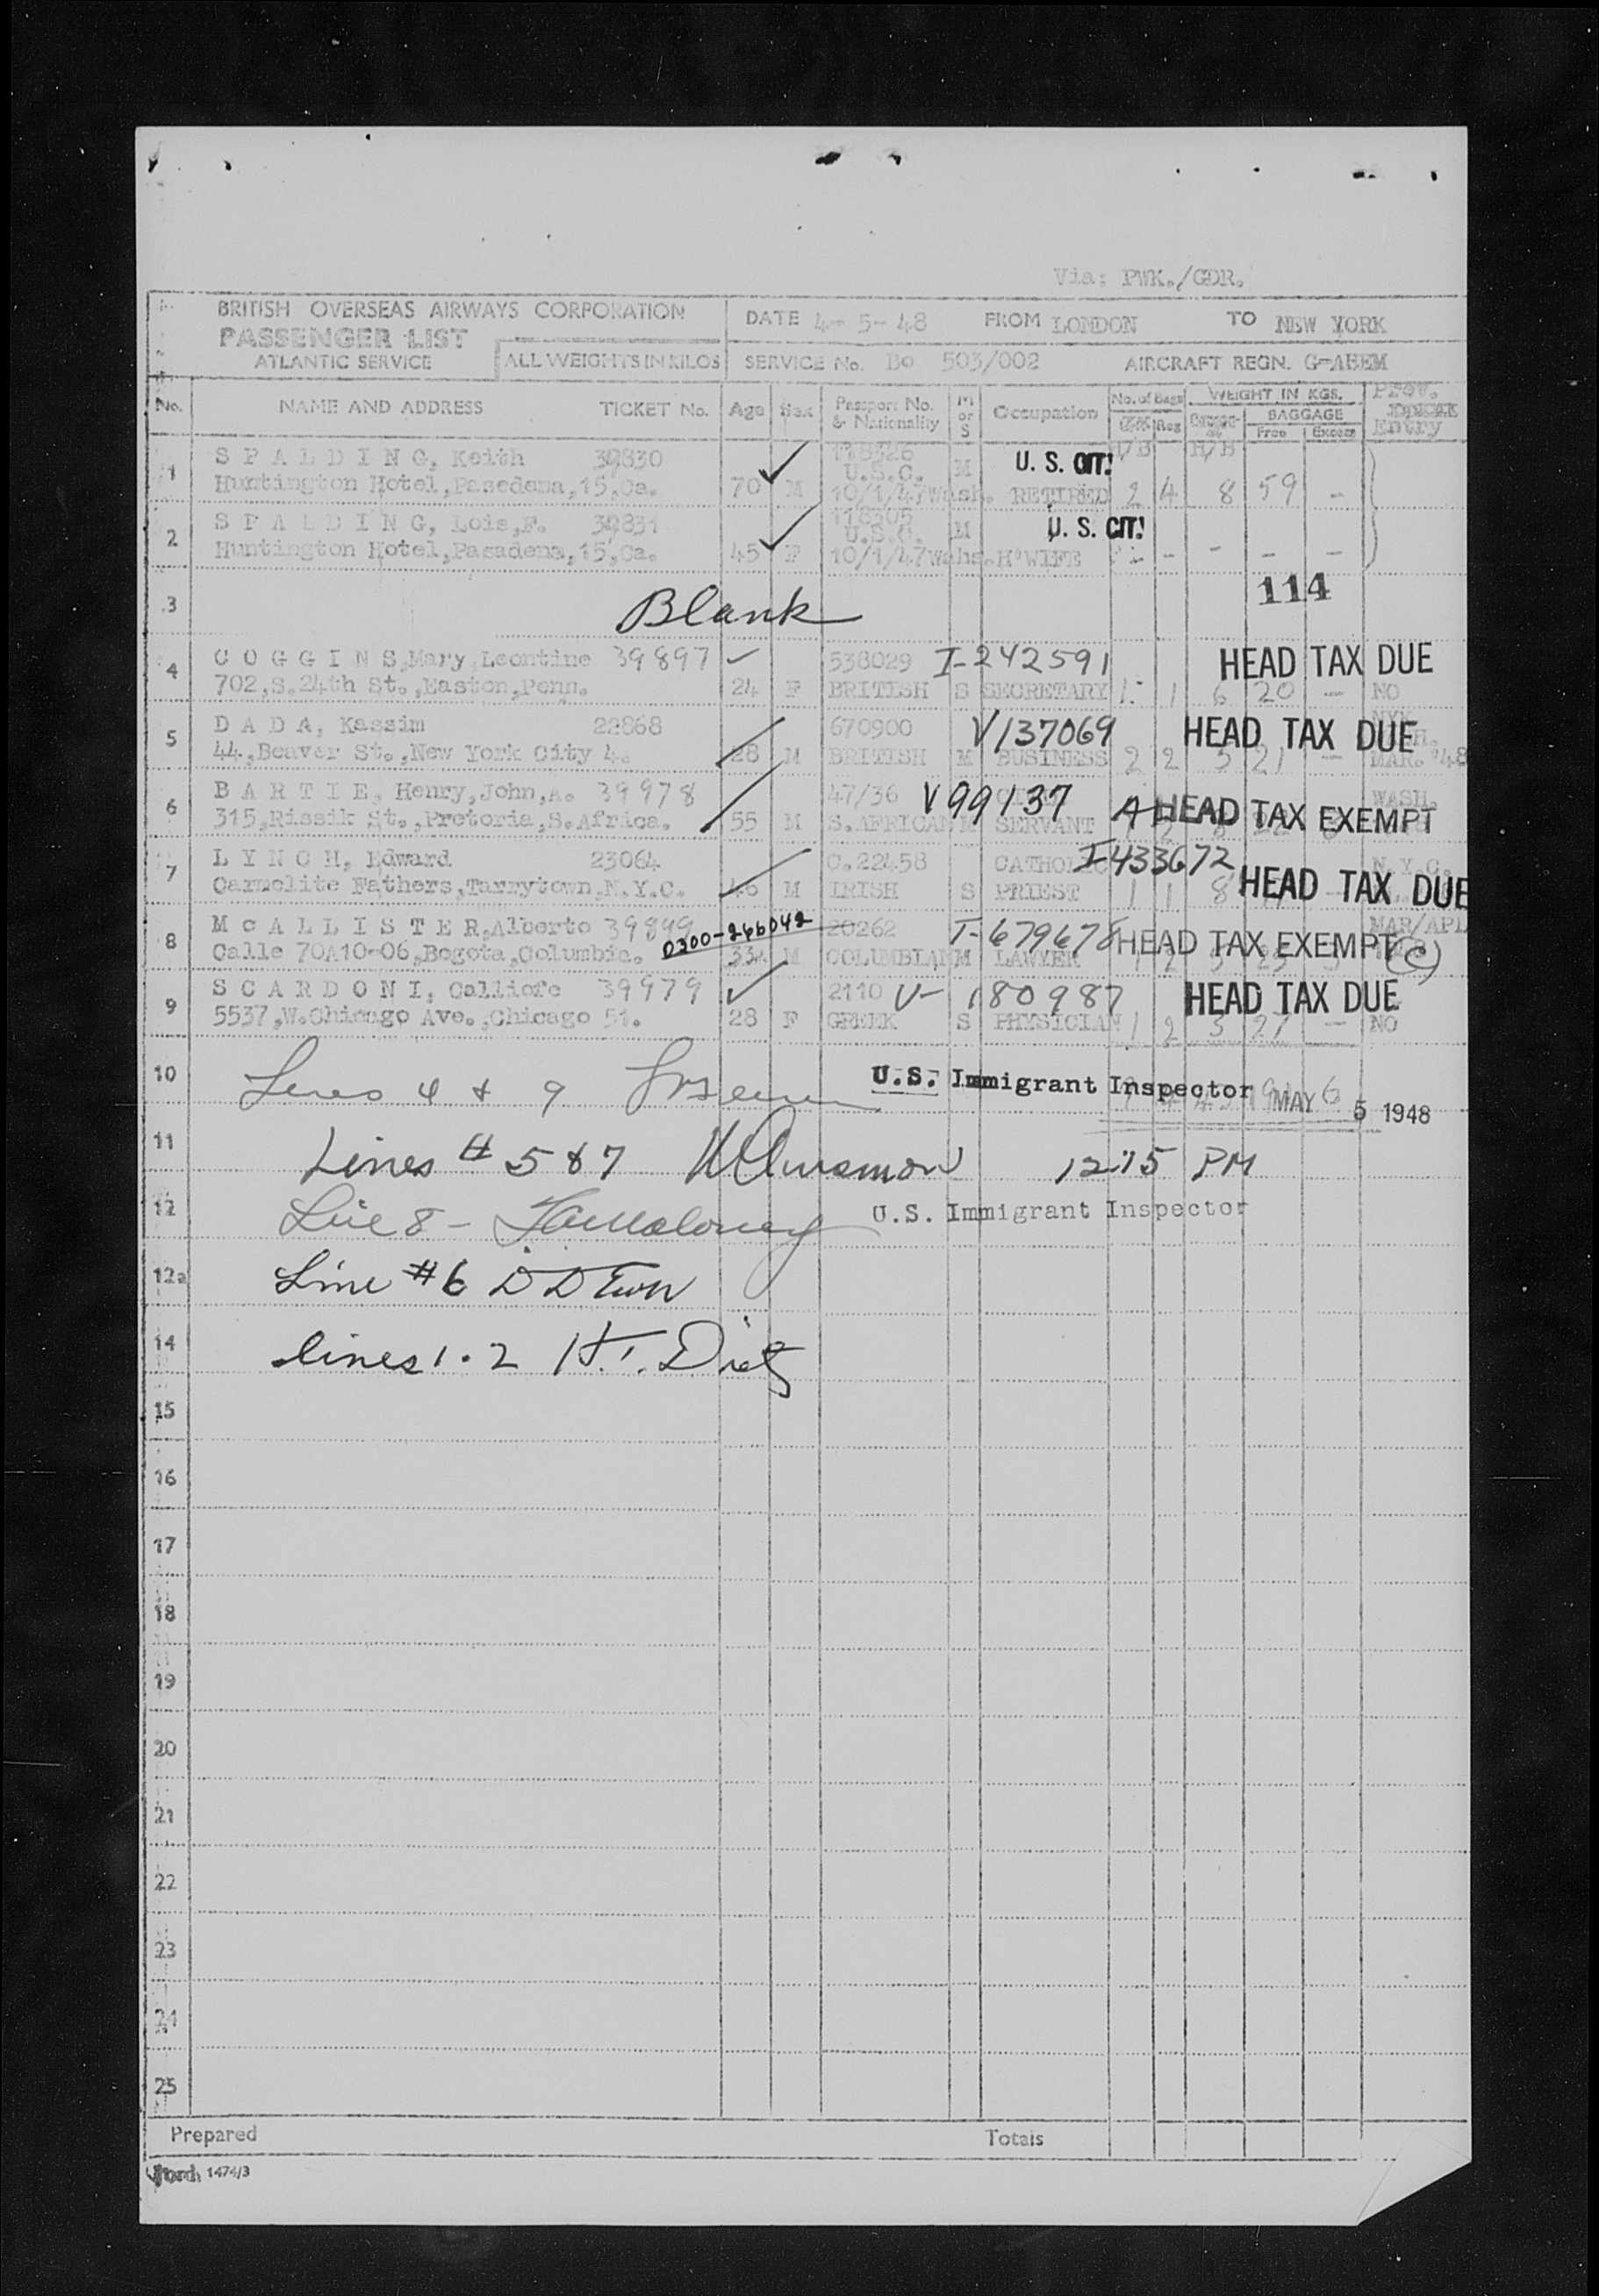 Via: PWK./GDR.
BRITISH OVERSEAS AIRWAYS CORPORATION
PASSENGER LIST
ATLANTIC SERVICE
ALL WEIGHTS IN KILOS
DATE 4- 5- 48 FROM LONDON TO NEW YORK
SERVICE No. Bo 503/002 AIRCRAFT REGN. G-AHEM
No. NAME AND ADDRESS TICKET No. Age Sex Passport No. & Nationality M or S Occupation No. of Bags WEIGHT IN KGS. Prev. Entry
Reg BAGGAGE
Free Excess
1 S P A L D I N G, Keith 39830 118326 U.S.C. M U. S. CIT.
Huntington Hotel, Pasedena, 15, Ca. 70 M 10/1/47 Wash. RETIRED 2 4 8 59 -
2 S P A L D I N G, Lois, F. 39831 118305 U.S.C. M U. S. CIT.
Huntington Hotel, Pasadena, 15, Ca. 45 F 10/1/47 Wahs. H'WIFE - - - - -
3 Blank 114
4 C O G G I N S, Mary Leontine 39897 538029 I-242591 HEAD TAX DUE
702, S. 24th St., Easton, Penn. 24 F BRITISH S SECRETARY 1 1 6 20 - NO
5 D A D A, Kassim 22868 670900 V137069 HEAD TAX DUE
44, Beaver St., New York City 4. 28 M BRITISH M BUSINESS 2 2 5 21 - MAR. '48
6 B A R T I E, Henry, John, A. 39978 47/36 V99137 HEAD TAX EXEMPT WASH.
315, Rissik St., Pretoria, S. Africa. 55 M S. AFRICAN M SERVANT
7 L Y N C H, Edward 23064 C.22458 CATHOLIC I433672 HEAD TAX DUE N.Y.C.
Carmolite Fathers, Tarrytown, N.Y.C. 46 M IRISH S PRIEST 1 1 8
8 M c A L L I S T E R, Alberto 39849 0300-246042 20262 T-679678 HEAD TAX EXEMPT (C) MAR/APL
Calle 70A10-06, Bogota, Columbia. 33 M COLUMBIAN M LAWYER 1 2 5 23
9 S C A R D O N I, Calliofe 39979 2110 V-180987 HEAD TAX DUE
5537, W. Chicago Ave., Chicago 51. 28 F GREEK S PHYSICIAN 1 2 3 21 - NO
10 Lines 4 & 9 U.S. Immigrant Inspector MAY 5 1948
11 Lines # 5 & 7 12:15 PM
12 Line 8 - U.S. Immigrant Inspector
12a Line #6
14 lines 1 . 2
15
16
17
18
19
20
21
22
23
24
25
Prepared Totals
1474/3